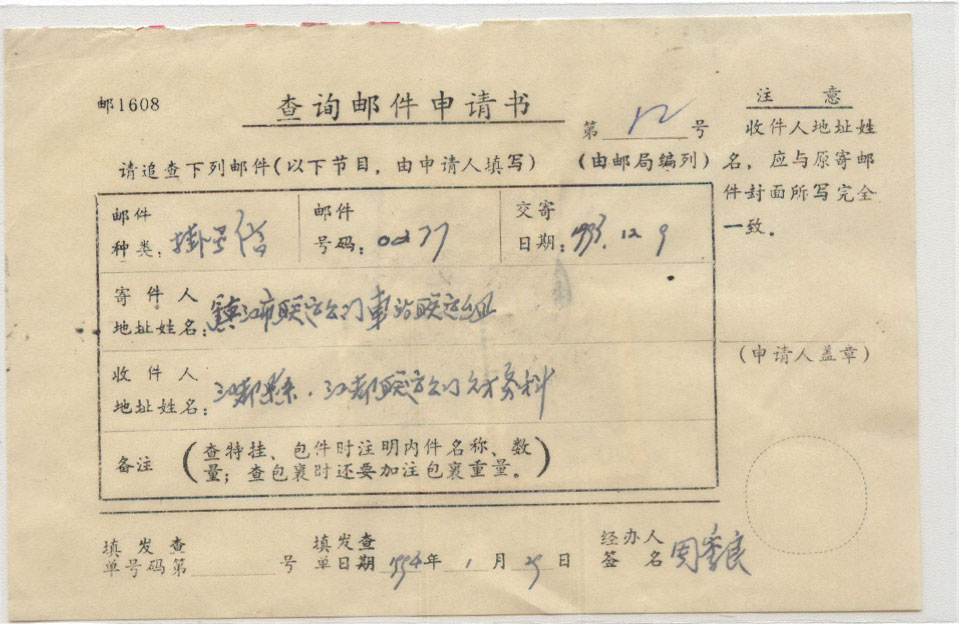 邮1608
查询邮件申请书
第 12 号
请追查下列邮件(以下节目,由申请人填写)
(由邮局编列)
邮件种类:挂号信
邮件号码:0077
交寄日期:1993.12 9
寄件人地址姓名:镇江市联运公司车站联运组
收件人地址姓名:江都县.江都联运公司财务科
备注(查特挂、包件时注明内件名称、数量;查包裹时还要加注包裹重量。)
填发查单号码第 号
填发查单日期1994年1月29日
经办人签名 周
注 意
收件人地址姓
名,应与原寄邮
件封面所写完全
一致。
(申请人盖章)